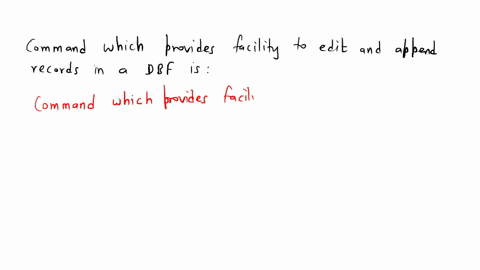 Command which provides facility to edit and append
records in a DBF is:
Command which provides facili